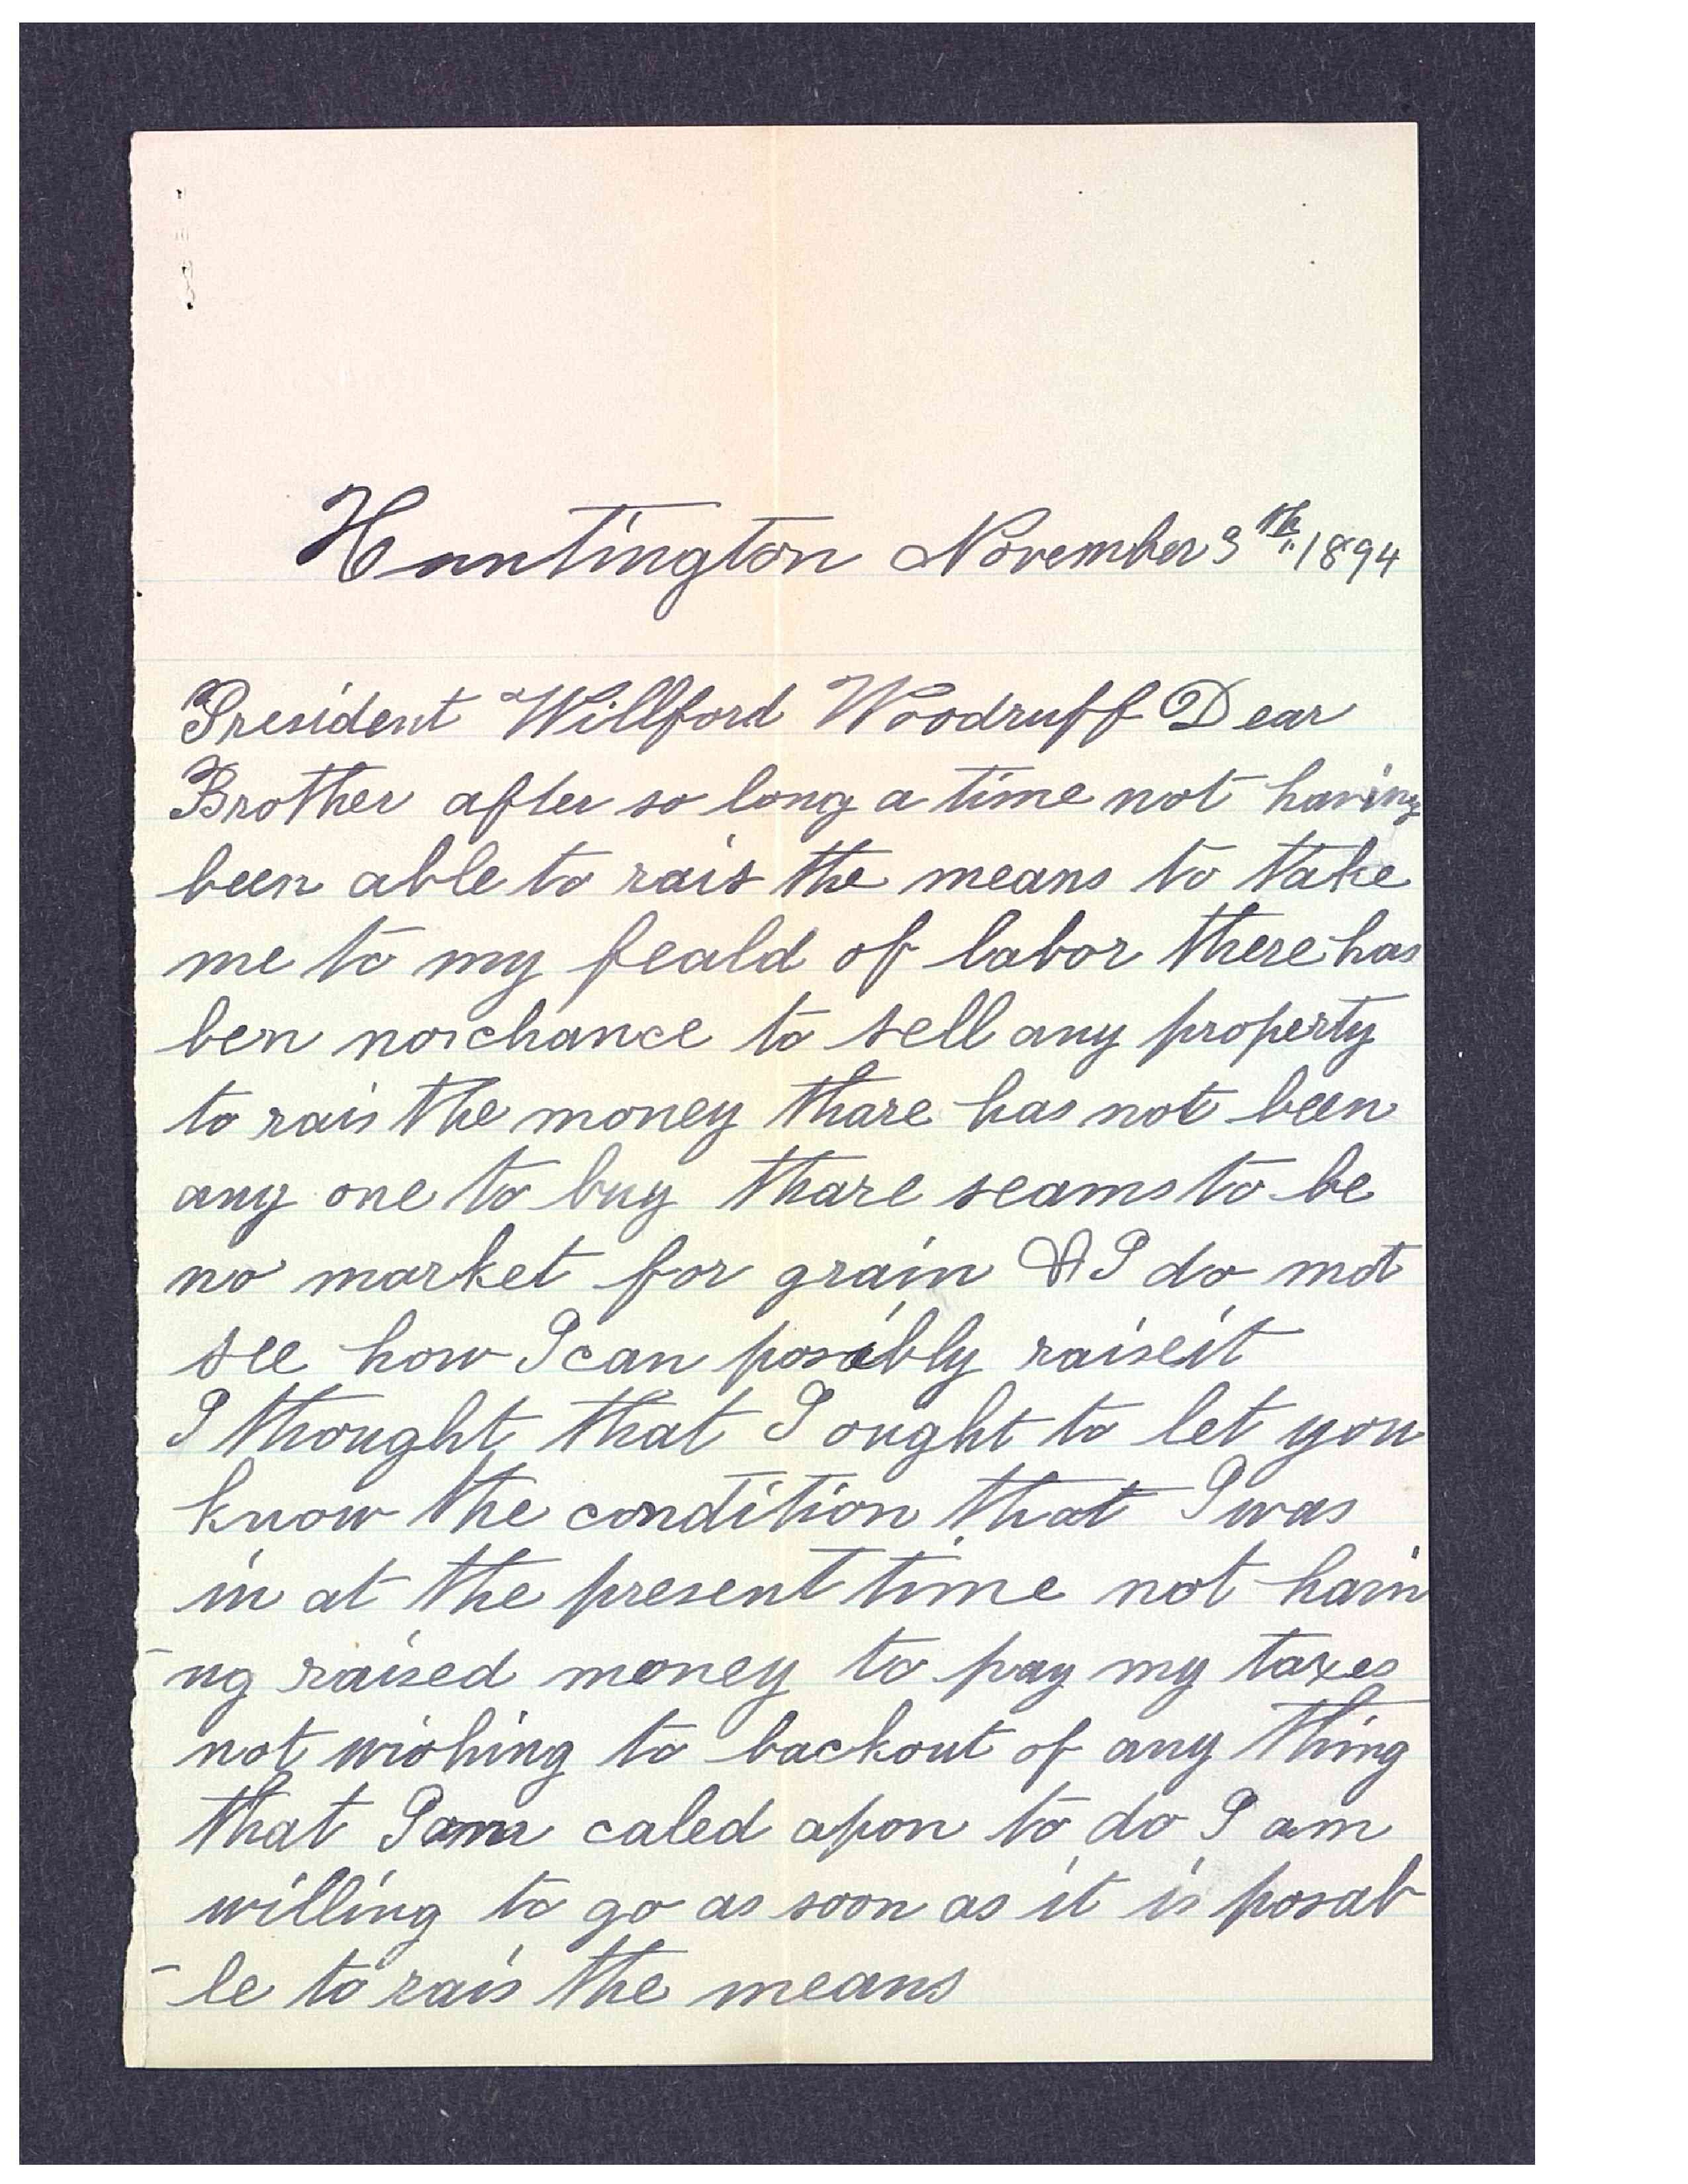 Huntington November 3th, 1894
President Willford Woodruff Dear
Brother after so long a time not having
been able to rais the means to take
me to my feald of labor there has
ben no chance to sell any property
to rais the money thare has not been
any one to buy thare seams to be
no market for grain & I do not
see how I can posibly raise it
I thought that I ought to let you
know the condition that I was
in at the present time not havin
-ng raised money to pay my taxes
not wishing to backout of any thing
that I am caled apon to do I am
willing to go as soon as it is posab
-le to rais the means